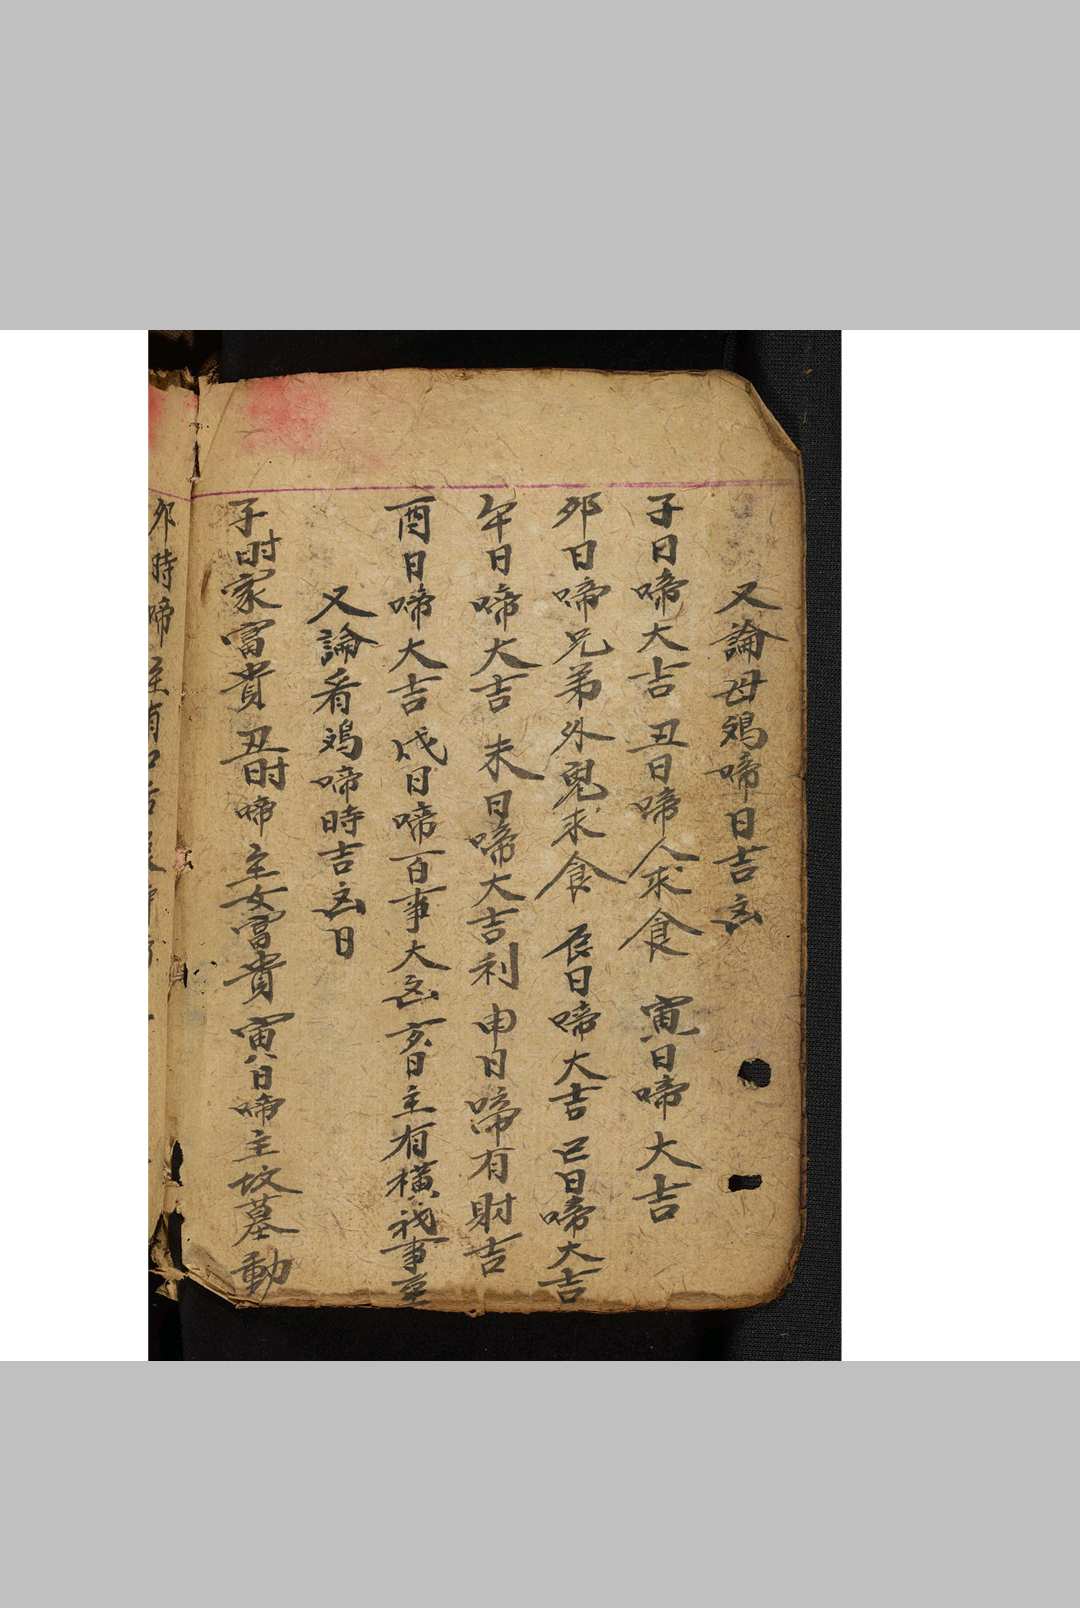 又論母鸡啼日吉凶
子日啼大吉 丑日啼人求食 寅日啼大吉
卯日啼兄弟外鬼求食 辰日啼大吉 己日啼大吉
午日啼大吉 未日啼大吉利 申日啼有財吉
酉日啼大吉 戌日啼百事大凶 亥日主有横 事至
又論看鸡啼時吉凶日
子时家富貴 丑时啼主女富貴 寅八日啼主坟墓動
卯時啼主有口舌